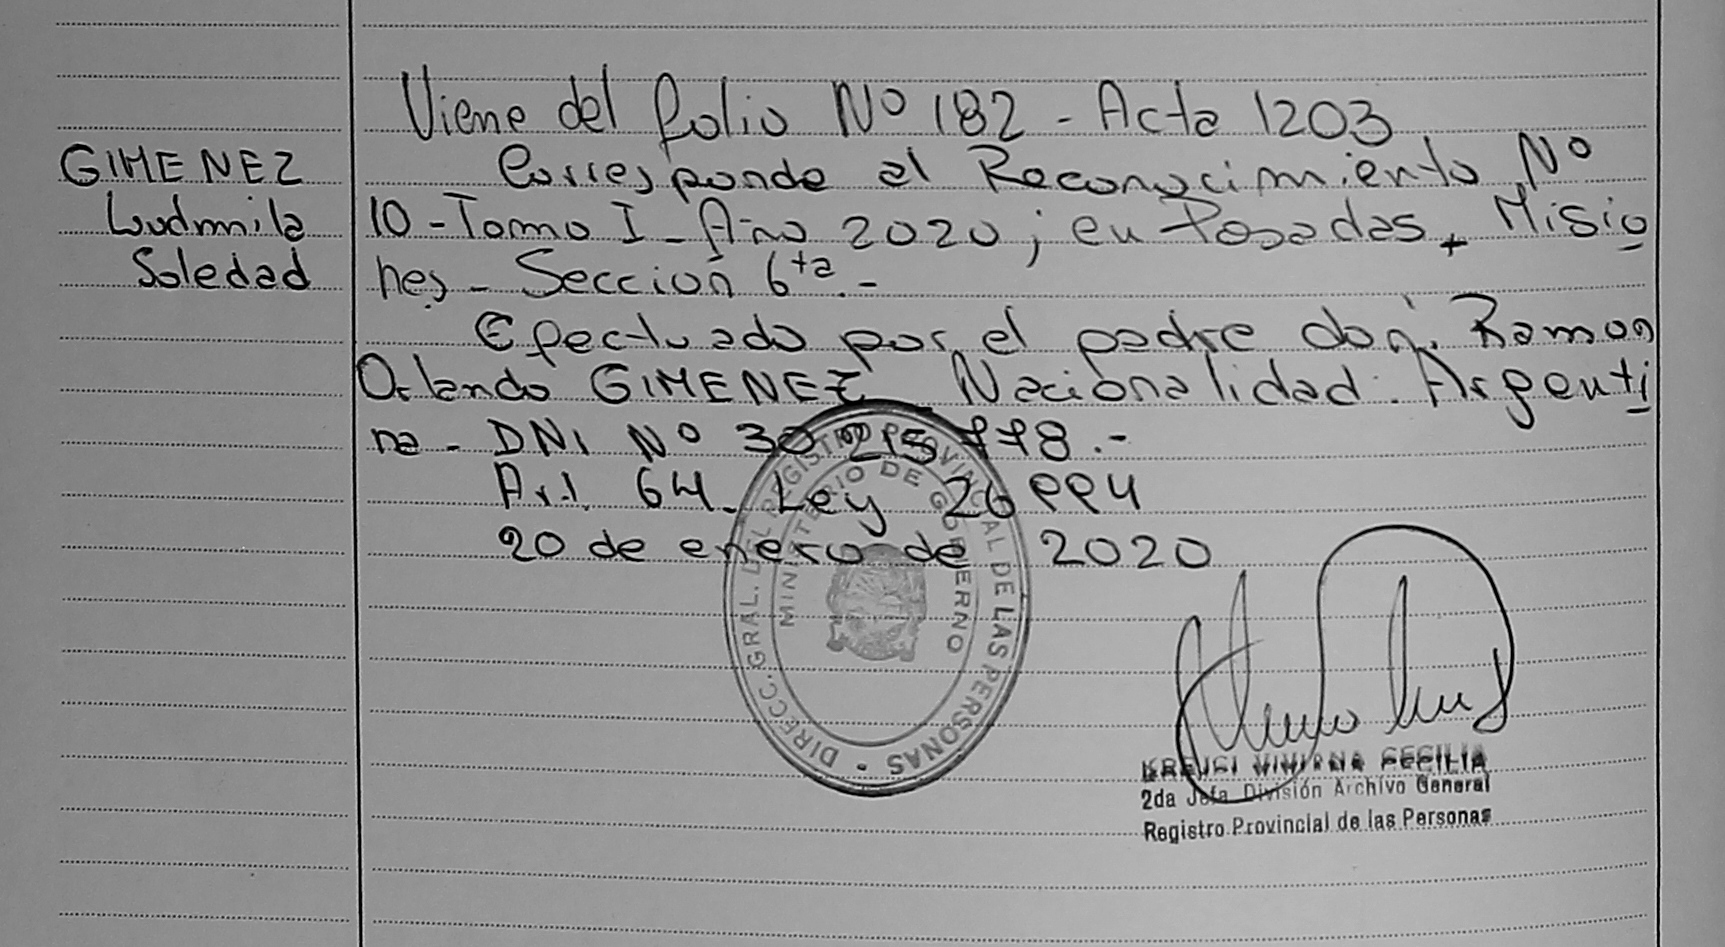 Viene del folio Nº 182 - Acta 1203
GIMENEZ
Ludmila
Soledad
Corresponde al Reconocimiento Nº
10 - Tomo I - Año 2020; en Posadas, Misio
nes - Sección 6ta.-
Efectuado por el padre don: Ramon
Orlando GIMENEZ - Nacionalidad: Argenti
na - DNI Nº 30.215.778.-
Art. 64 - Ley 26994
20 de enero de 2020
DIRECC. GRAL. DEL REGISTRO PROVINCIAL DE LAS PERSONAS
MINISTERIO DE GOBIERNO
VIVIANA CECILIA
2da Jefa División Archivo General
Registro Provincial de las Personas